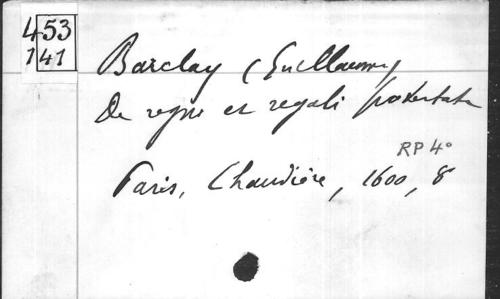 453
141
Barclay (Guillaume)
De regno et regali potestate
RP 4°
Paris, Chaudière, 1600, 8°